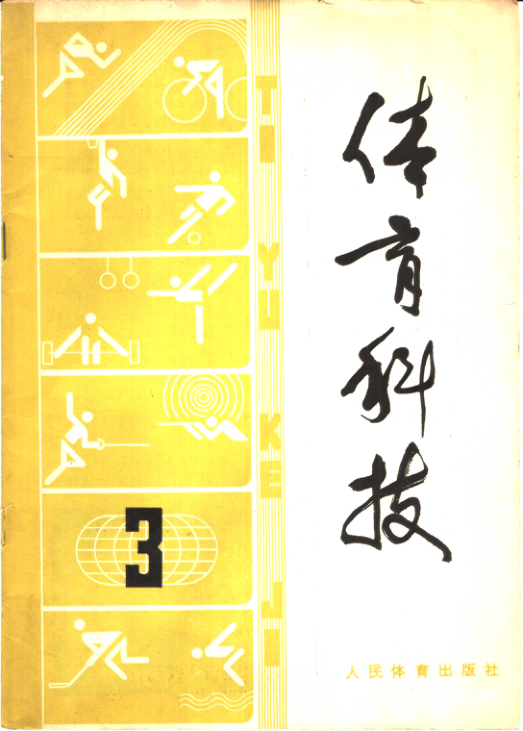 体育科技
TI YU KE JI
3
人民体育出版社